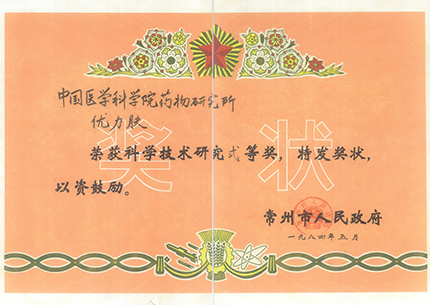 中国医学科学院药物研究所
优力肤
奖状
荣获科学技术研究弍等奖，特发奖状，
以资鼓励。
常州市人民政府
一九八四年五月